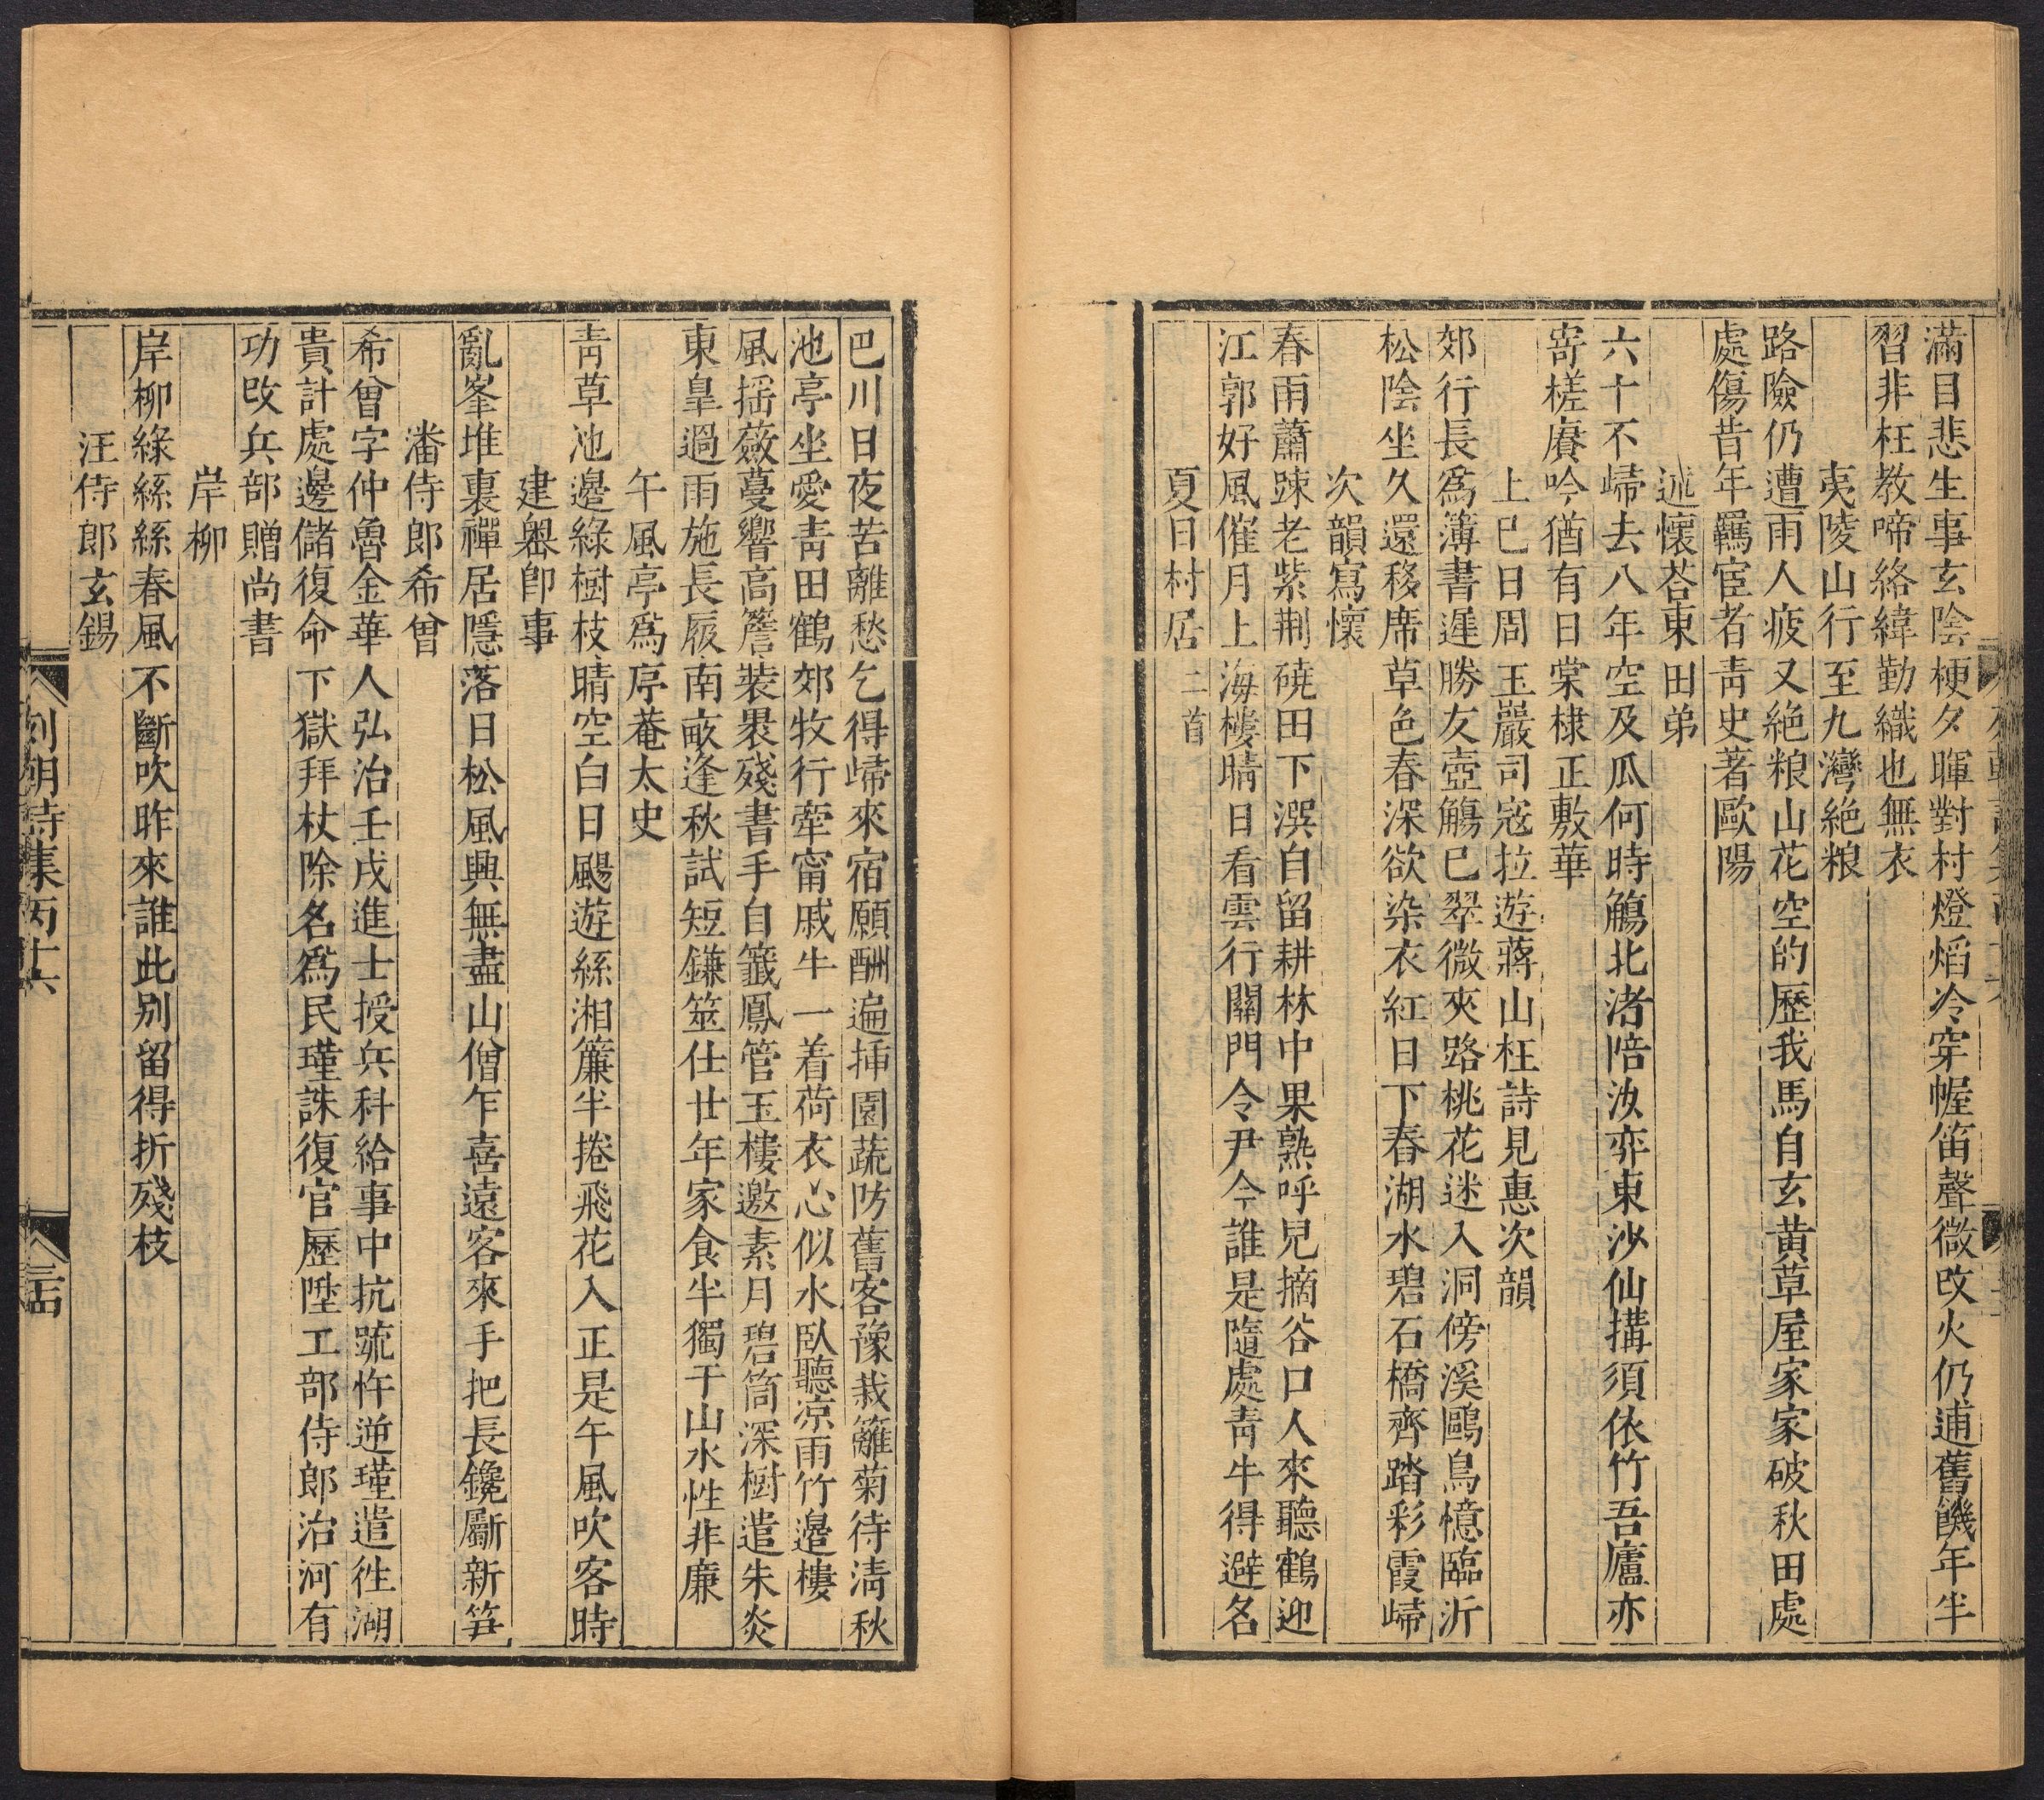 滿目悲生事玄陰梗夕暉對村燈焰冷穿幄笛聲微改火仍逋舊饑年半
習非枉教啼絡緯勤織也無衣
夷陵山行至九灣絶粮
路險仍遭雨人疲又絶粮山花空的歷我馬自玄黄草屋家家破秋田處
處傷昔年羈宦者靑史著歐陽
述懷荅東田弟
六十不歸去八年空及瓜何時觴北渚陪汝弈東沙仙搆須依竹吾廬亦
寄槎賡吟猶有日棠棣正敷華
上巳日周玉巖司冦拉遊蔣山枉詩見惠次韻
郊行長爲簿書遲勝友壺觴巳翠微夾路桃花迷入洞傍溪鷗鳥憶臨沂
松陰坐久還移席草色春深欲染衣紅日下春湖水碧石橋齊踏彩霞歸
次韻寫懷
春雨蕭踈老紫荆磽田下潠自留耕林中果熟呼兒摘谷口人來聽鶴迎
江郭好風催月上海樓晴日看雲行關門令尹今誰是隨處靑牛得避名
夏日村居 二首
巴川日夜苦離愁乞得歸來宿願酬遍揷園蔬防舊客豫栽籬菊待淸秋
池亭坐愛靑田鶴郊牧行牽甯戚牛一着荷衣心似水臥聽凉雨竹邉樓
風揺薇蔓響高簷裝褁殘書手自籤鳳管玉樓邀素月碧筒深樹遣朱炎
東皐過雨施長㕞南畝逢秋試短鎌筮仕廿年家食半獨于山水性非廉
午風亭爲㡯菴太史
靑草池邉綠樹枝晴空白日颺遊絲湘簾半捲飛花入正是午風吹客時
建興卽事
亂峯堆裏禪居隱落日松風興無盡山僧乍喜遠客來手把長鑱斸新笋
潘侍郎希曾
希曾字仲魯金華人弘治壬戌進士授兵科給事中抗䟽忤逆瑾遣徃湖
貴計處邉儲復命下獄拜杖除名爲民瑾誅復官歷陞工部侍郎治河有
功改兵部贈尚書
岸柳
岸柳綠絲絲春風不斷吹昨來誰此别留得折殘枝
汪侍郎玄錫
列朝詩集丙十六